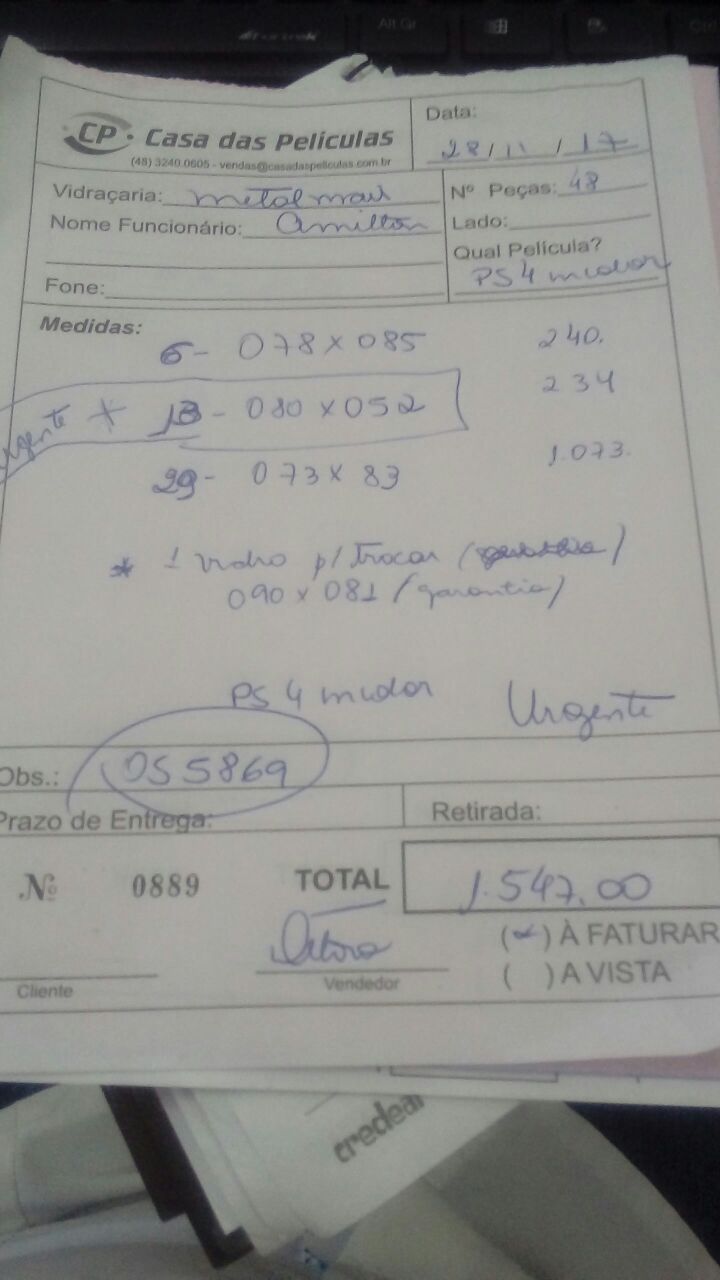 Alt Gr
CP · Casa das Películas
(48) 3240.0605 - vendas@casadaspeliculas.com.br
Data:
28/11/17
Vidraçaria: metalmax
Nome Funcionário: Amilton
Fone:
Nº Peças: 48
Lado:
Qual Película?
PS4 incolor
Medidas:
6- 078 x 085 240.
urgente * 13- 080 x 052 234
29- 073 x 83 1.073.
* 1 vidro p/ trocar (garantia)
090 x 081 (garantia)
PS 4 incolor
Urgente
Obs.: OS 5869
Prazo de Entrega:
Retirada:
Nº 0889
TOTAL 1.547,00
(x) À FATURAR
( ) A VISTA
Cliente
Vendedor
credeal